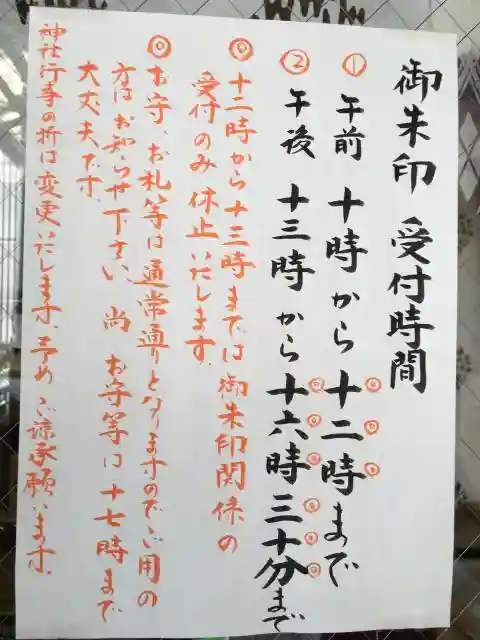 御朱印 受付時間
① 午前 十時から十二時まで
② 午後 十三時から十六時三十分まで
◎ 十二時から十三時までは御朱印関係の
受付のみ休止いたします。
◎ お守、お札等は通常通りとなりますのでご用の
方はお知らせ下さい、尚、お守等は十七時まで
大丈夫です。
神社行事の折は変更いたします。予めご諒承願います。